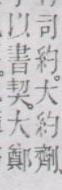 司約。大約劑。
以書契。大鄭